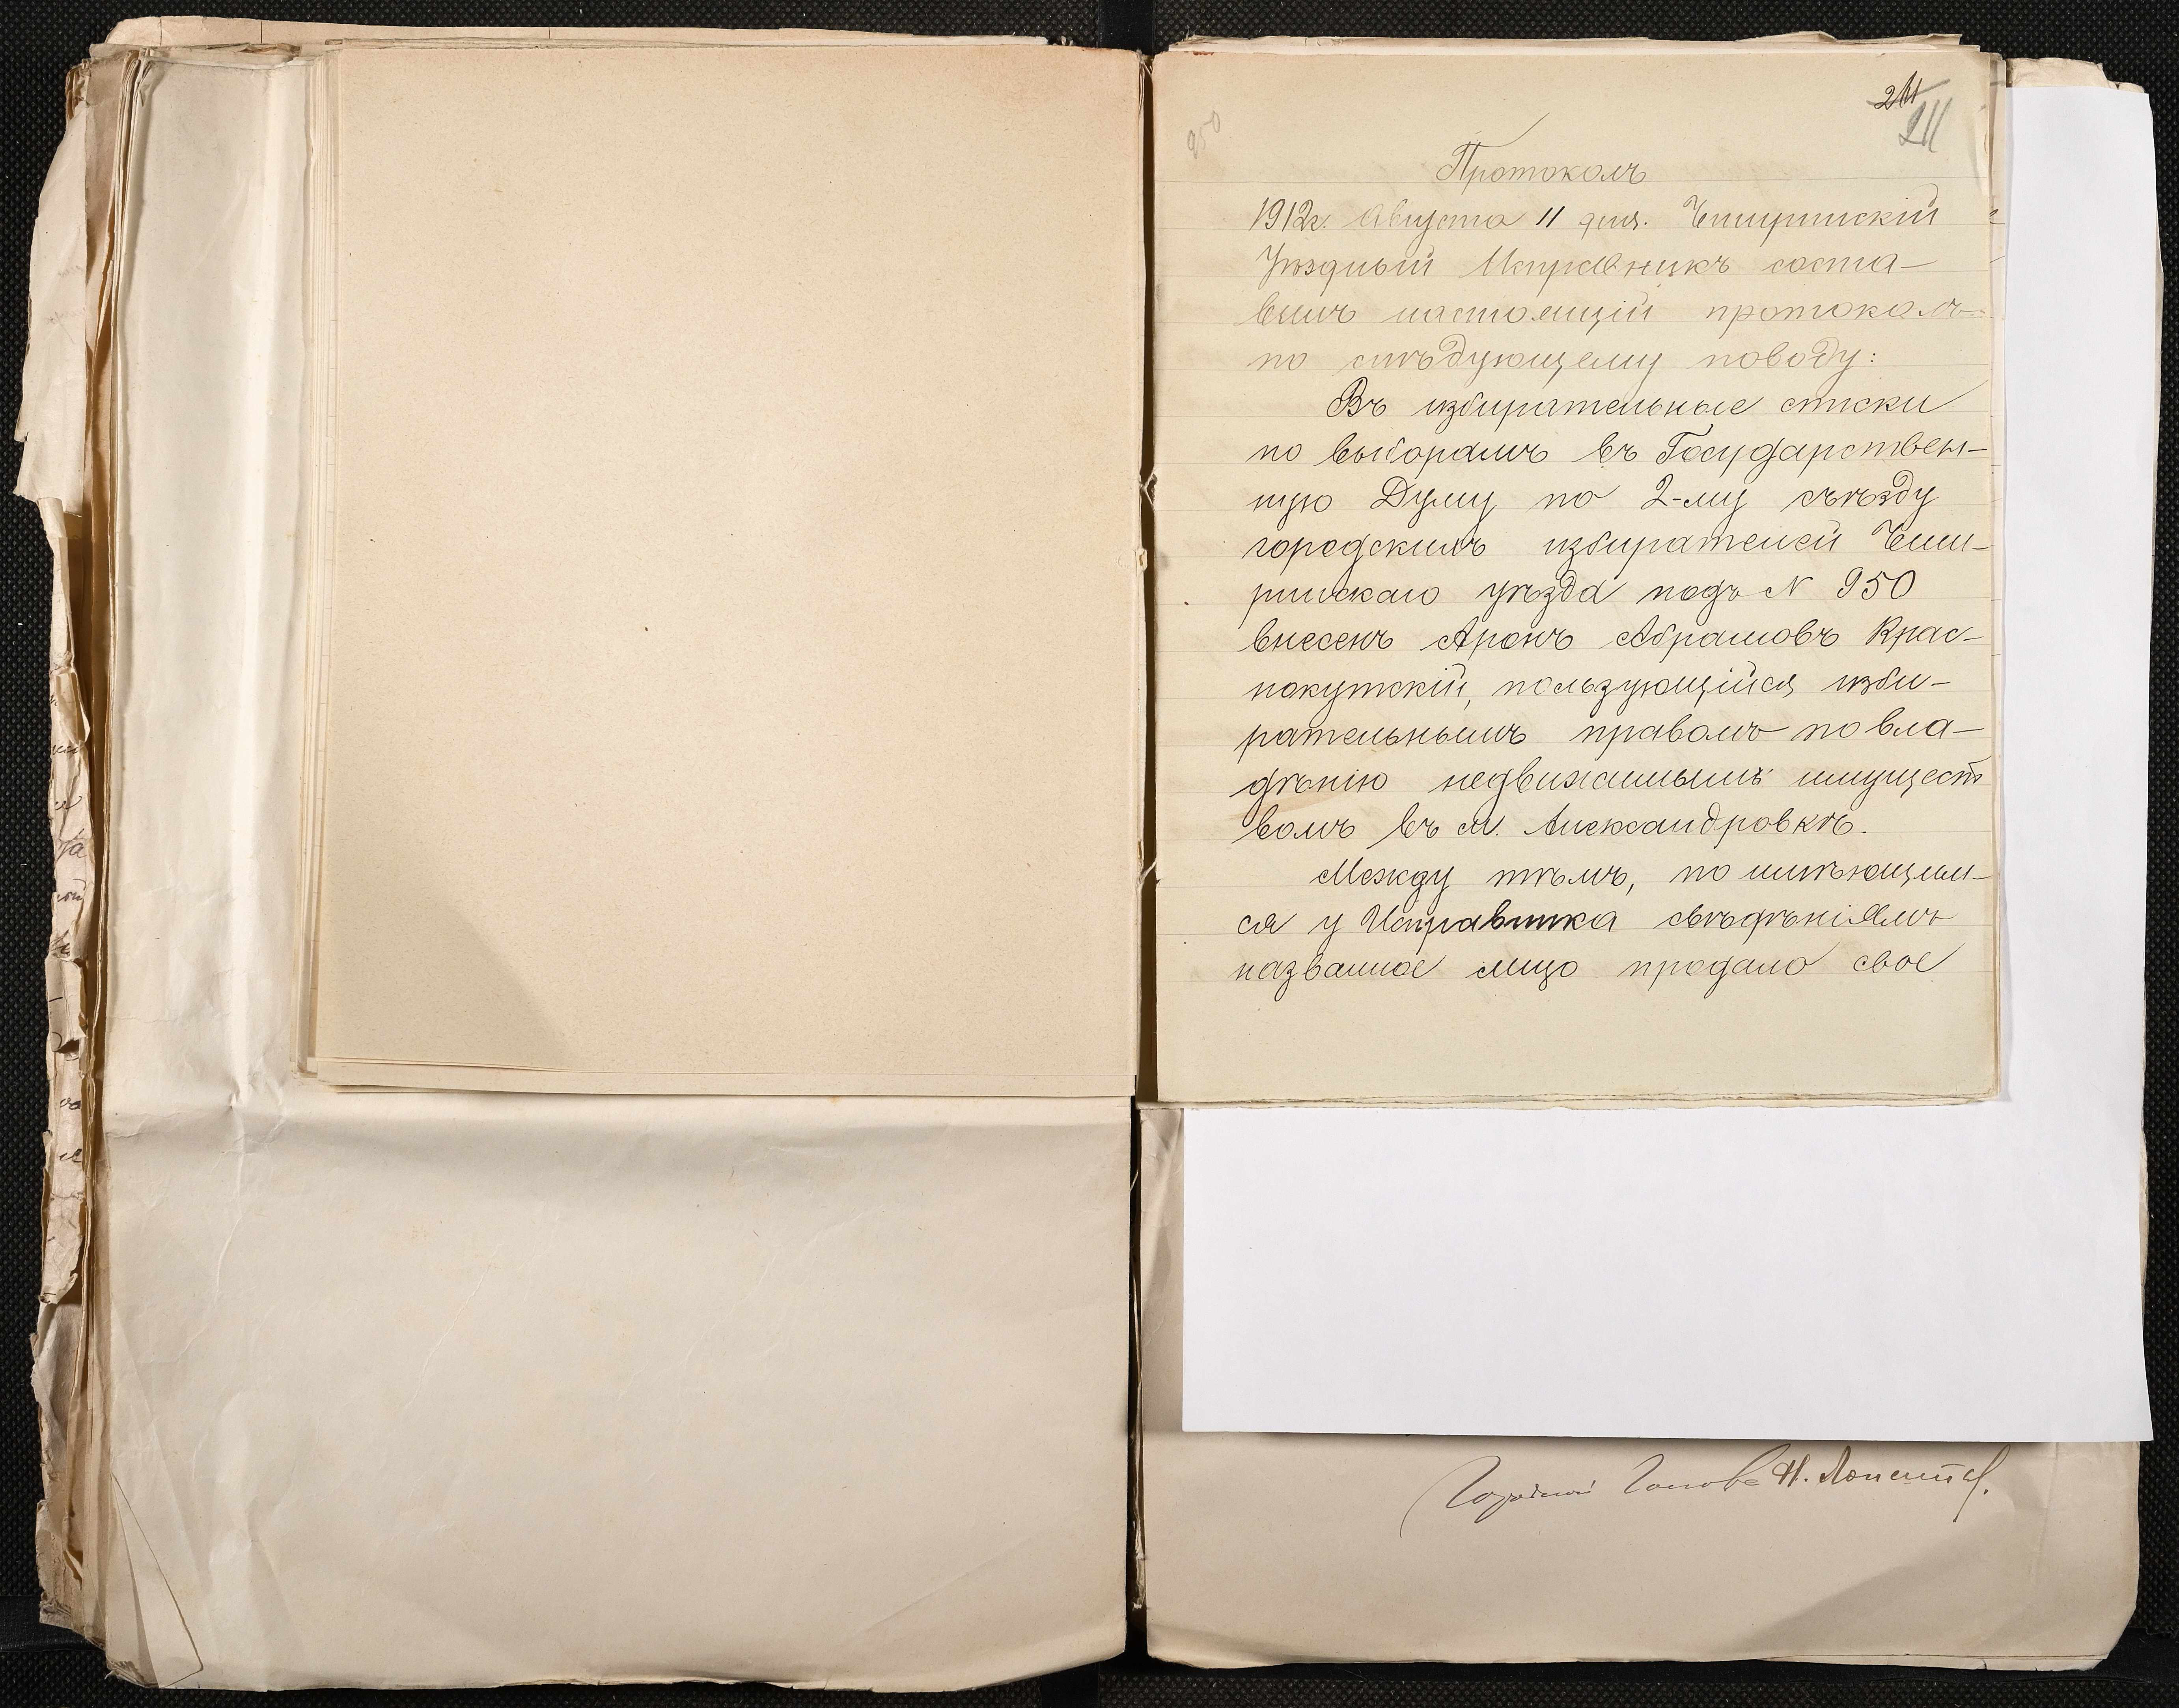 211
211
950
Протоколъ
1912г. Августа 11 дня. Чигиринскій
Уѣздный Исправникъ соста-
вилъ настоящій протоколъ
по слѣдующему поводу:
Въ избирательные списки
по выборамъ въ Государствен-
ную Думу по 2-му съѣзду
городскихъ избирателей Чиги-
ринскаго уѣзда подъ N 950
внесенъ Аронъ Абрамовъ Крас-
нокутскій, пользующійся изби-
рательнымъ правомъ по вла-
дѣнію недвижимымъ имущест
вомъ въ м. Александровкѣ.
Между тѣмъ, по имѣющим-
ся у Исправника свѣдѣніямъ
названное лицо продало свое
Городской Голова Н.